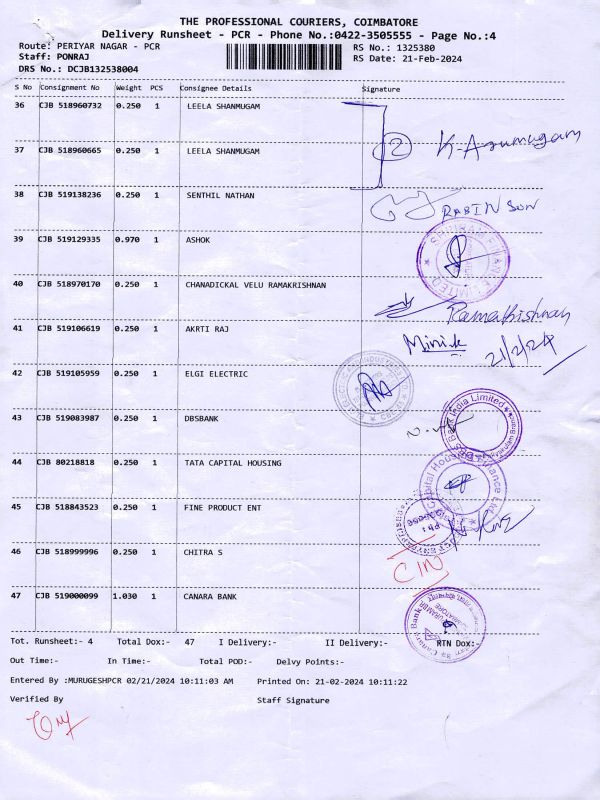 THE PROFESSIONAL COURIERS, COIMBATORE
Delivery Runsheet - PCR - Phone No.:0422-3505555 - Page No.:4
Route: PERIYAR NAGAR - PCR
RS No.: 1325380
Staff: PONRAJ
RS Date: 21-Feb-2024
DRS No.: DCJB132538004
S No Consignment No Weight PCS Consignee Details Signature
36 CJB 518960732 0.250 1 LEELA SHANMUGAM
37 CJB 518960665 0.250 1 LEELA SHANMUGAM
2 K. Arumugam
38 CJB 519138236 0.250 1 SENTHIL NATHAN
RABINSON
39 CJB 519129335 0.970 1 ASHOK
40 CJB 518970170 0.250 1 CHANADICKAL VELU RAMAKRISHNAN
Ramakrishnan
41 CJB 519106619 0.250 1 AKRTI RAJ
21/2/24
42 CJB 519105959 0.250 1 ELGI ELECTRIC
43 CJB 519083987 0.250 1 DBSBANK
Bank India Limited
44 CJB 80218818 0.250 1 TATA CAPITAL HOUSING
Capital Housing Finance Ltd
45 CJB 518843523 0.250 1 FINE PRODUCT ENT
46 CJB 518999996 0.250 1 CHITRA S
CIN
47 CJB 519000099 1.030 1 CANARA BANK
Tot. Runsheet:- 4 Total Dox:- 47 I Delivery:- II Delivery:- RTN Dox:-
Out Time:- In Time:- Total POD:- Delvy Points:-
Entered By :MURUGESHPCR 02/21/2024 10:11:03 AM Printed On: 21-02-2024 10:11:22
Verified By Staff Signature